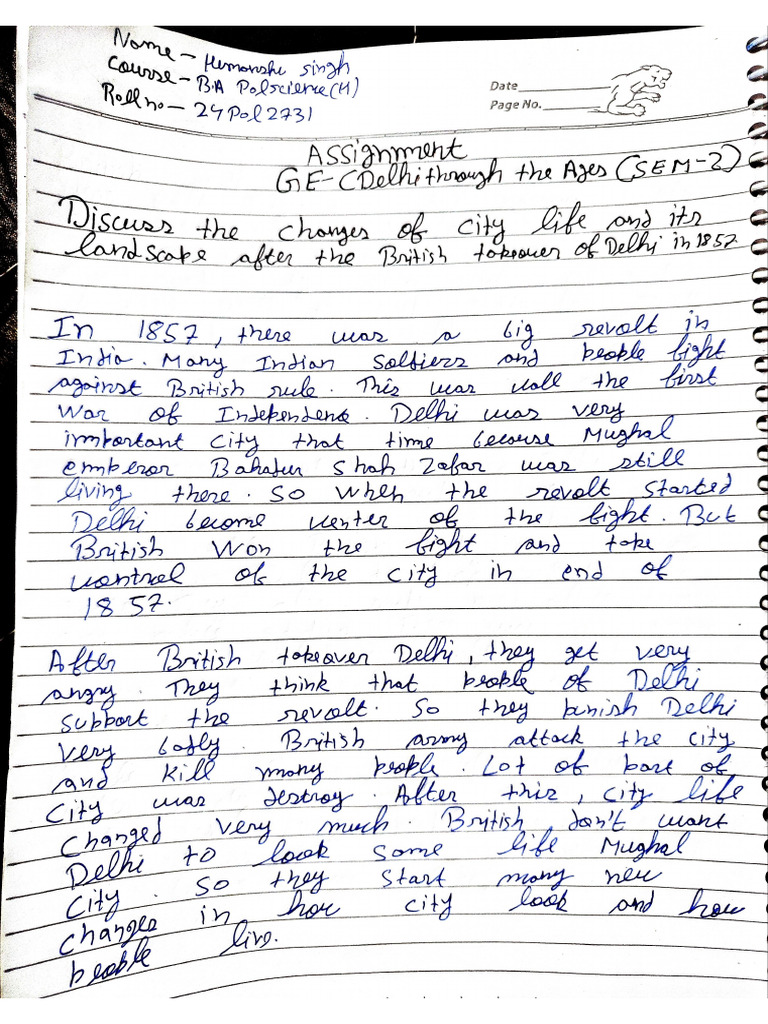 Name - Himanshu singh
Course - B.A Polscience(H)
Roll no - 24Pol2731
Date
Page No.
Assignment
GE - (Delhi through the Ages (SEM-2)
Discuss the changes of city life and its
landscape after the British takeover of Delhi in 1857
In 1857, there was a big revolt in
India. Many Indian soldiers and people fight
against British rule. This was call the first
War of Independence. Delhi was very
important city that time because Mughal
emperor Bahadur Shah Zafar was still
living there. So when the revolt started
Delhi become center of the fight. But
British won the fight and take
control of the city in end of
1857.
After British takeover Delhi, they get very
angry. They think that people of Delhi
support the revolt. So they punish Delhi
very badly. British army attack the city
and kill many people. Lot of part of
city was destroy. After this, city life
changed very much. British don't want
Delhi to look same life Mughal
city. So they start many new
changes in how city look and how
people live.